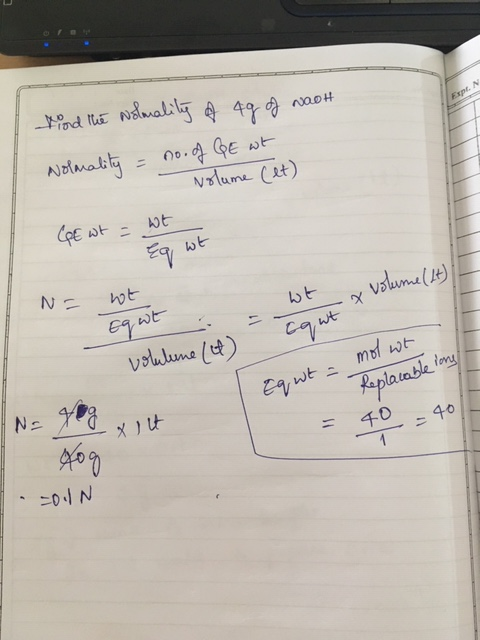 Find the Normality of 4g of NaOH
Normality = no. of GE wt / Volume (lt)
GE wt = wt / Eq wt
N = wt / Eq wt / Volulume (lt) = wt / Eq wt × Volume (lt)
Eq wt = mol wt / Replacable ions
= 40 / 1 = 40
N = g / 40g × 1 lt
= 0.1 N
Expt. N